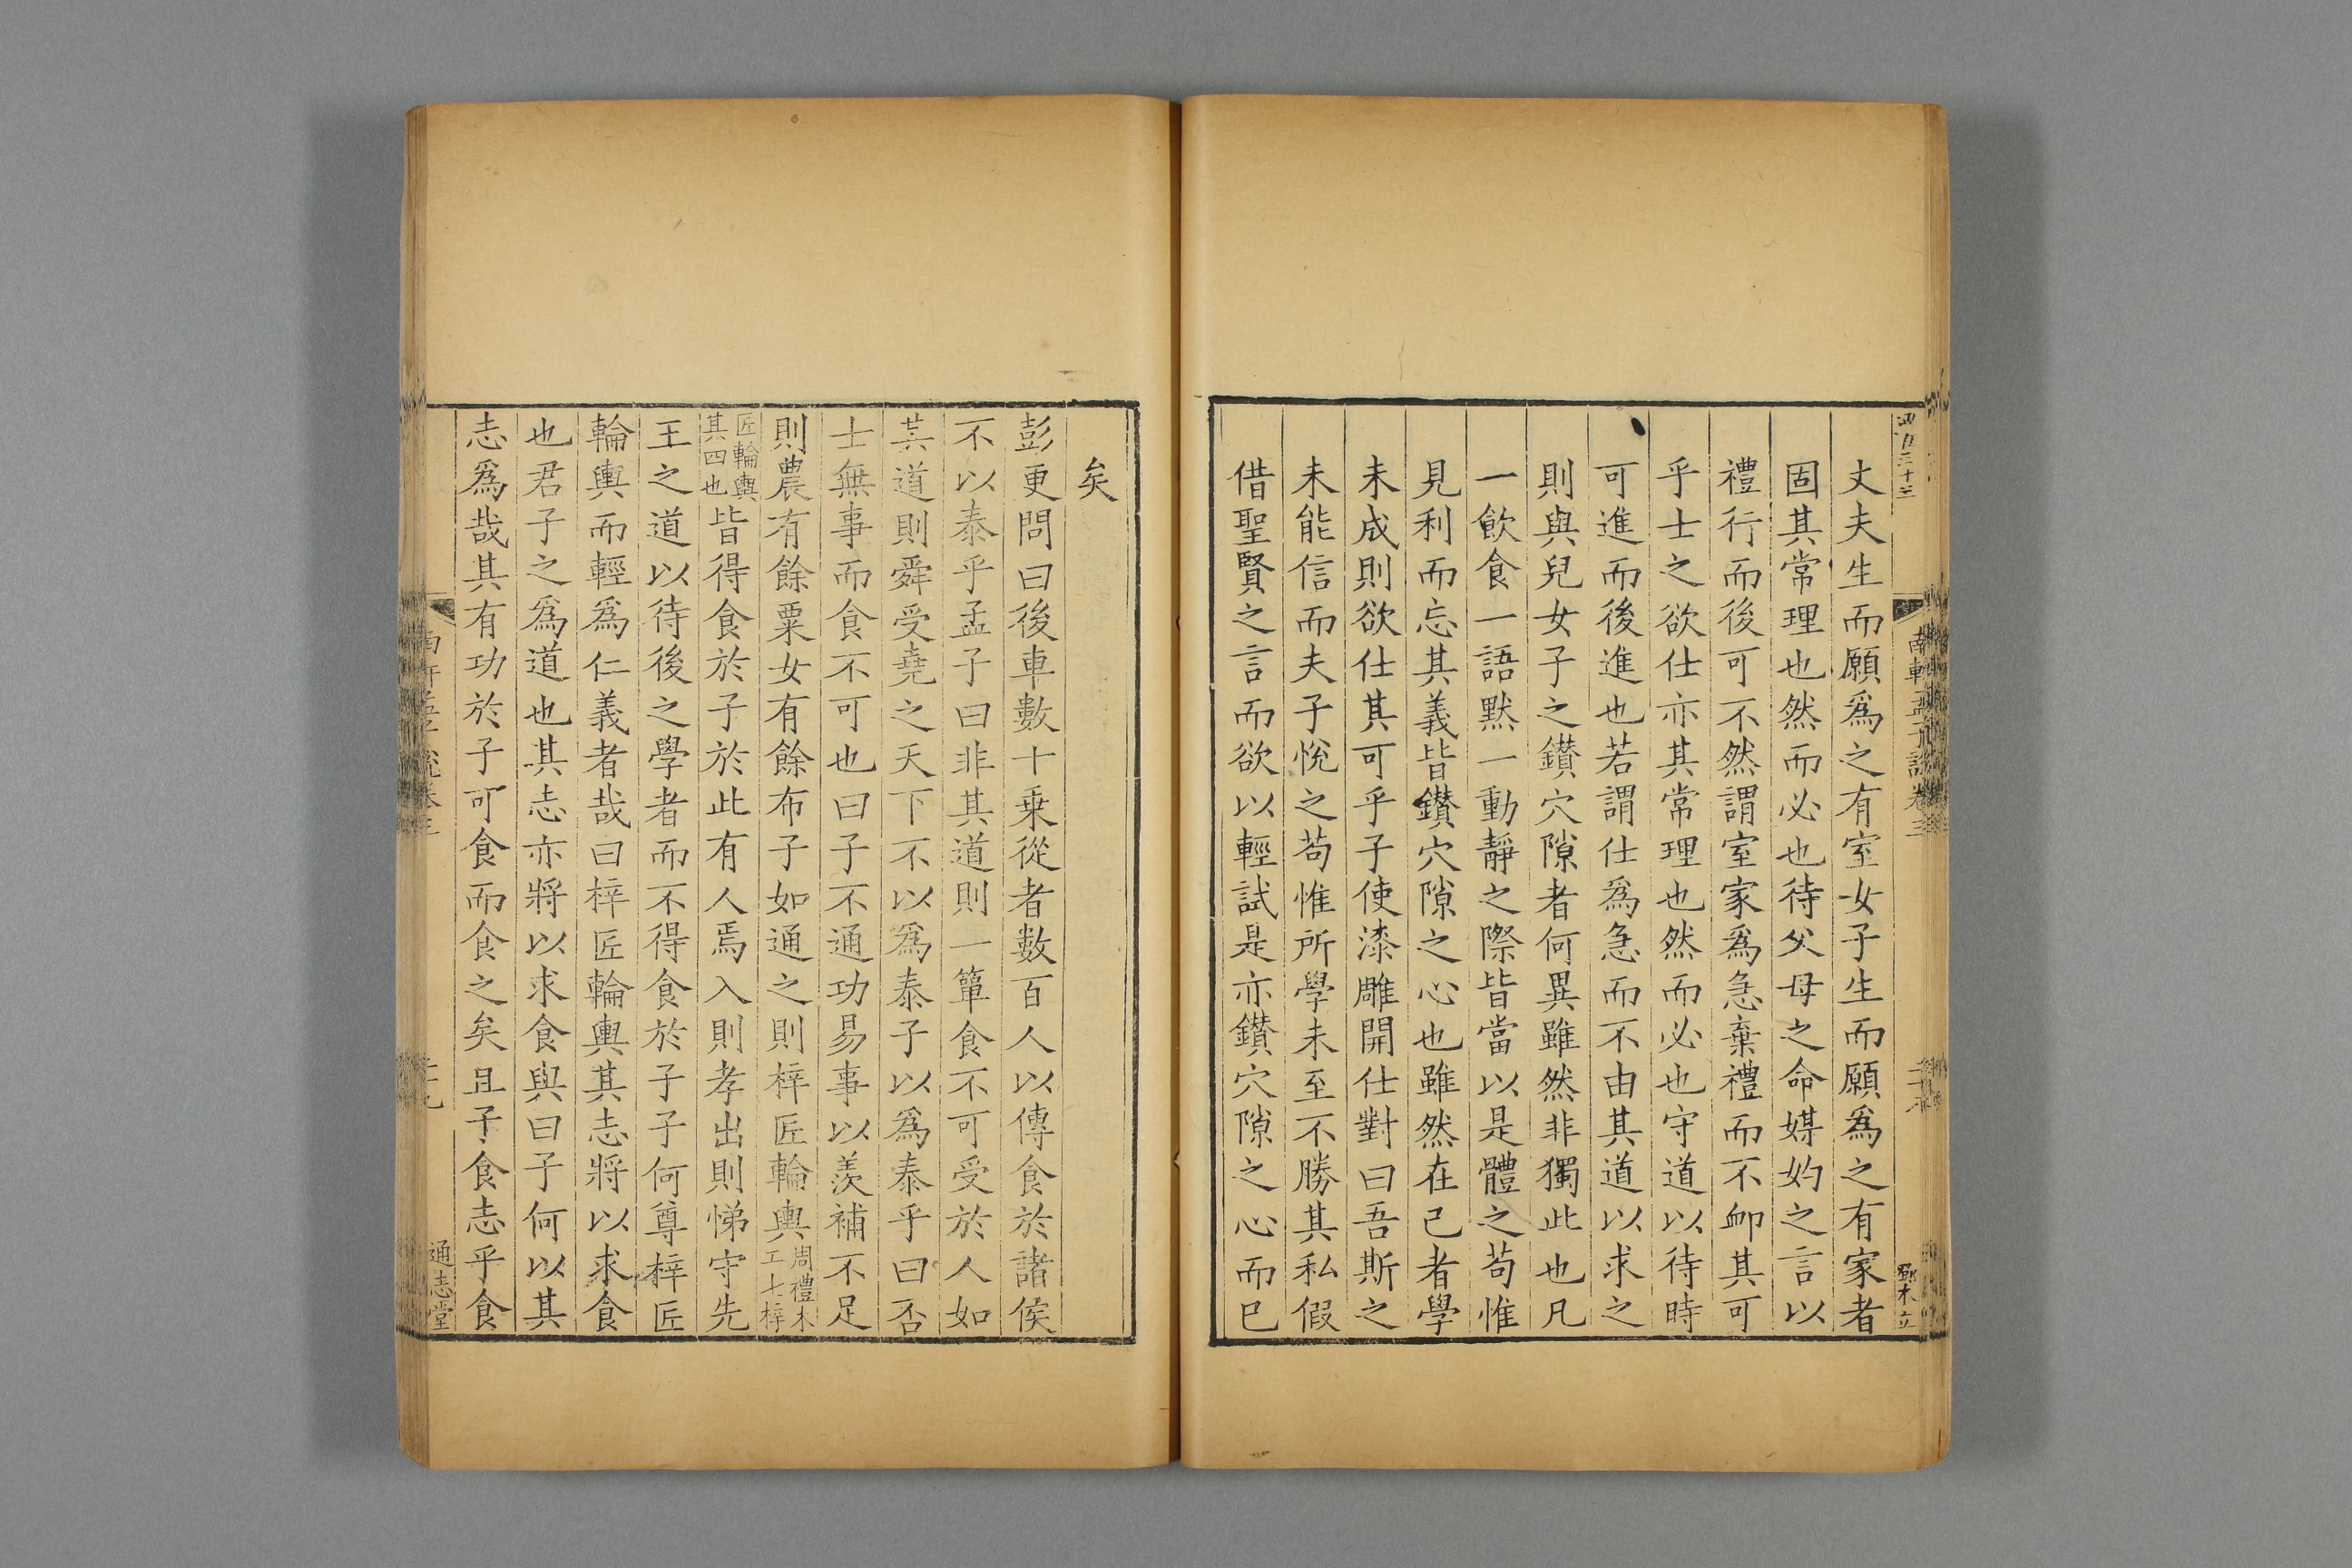 四百三十三
南軒孟子說卷三
鄧木立
丈夫生而願爲之有室女子生而願爲之有家者
固其常理也然而必也待父母之命媒妁之言以
禮行而後可不然謂室家爲急棄禮而不卹其可
乎士之欲仕亦其常理也然而必也守道以待時
可進而後進也若謂仕爲急而不由其道以求之
則與兒女子之鑽穴隙者何異雖然非獨此也凡
一飲食一語默一動靜之際皆當以是體之苟惟
見利而忘其義皆鑽穴隙之心也雖然在己者學
未成則欲仕其可乎子使漆雕開仕對曰吾斯之
未能信而夫子悅之苟惟所學未至不勝其私假
借聖賢之言而欲以輕試是亦鑽穴隙之心而巳
矣
彭更問曰後車數十乗從者數百人以傳食於諸侯
不以泰乎孟子曰非其道則一簞食不可受於人如
其道則舜受堯之天下不以爲泰子以爲泰乎曰否
士無事而食不可也曰子不通功易事以羨補不足
則農有餘粟女有餘布子如通之則梓匠輪輿周禮木工七梓
匠輪輿其四也皆得食於子於此有人焉入則孝出則悌守先
王之道以待後之學者而不得食於子子何尊梓匠
輪輿而輕爲仁義者哉曰梓匠輪輿其志將以求食
也君子之爲道也其志亦將以求食與曰子何以其
志爲哉其有功於子可食而食之矣且子食志乎食
通志堂